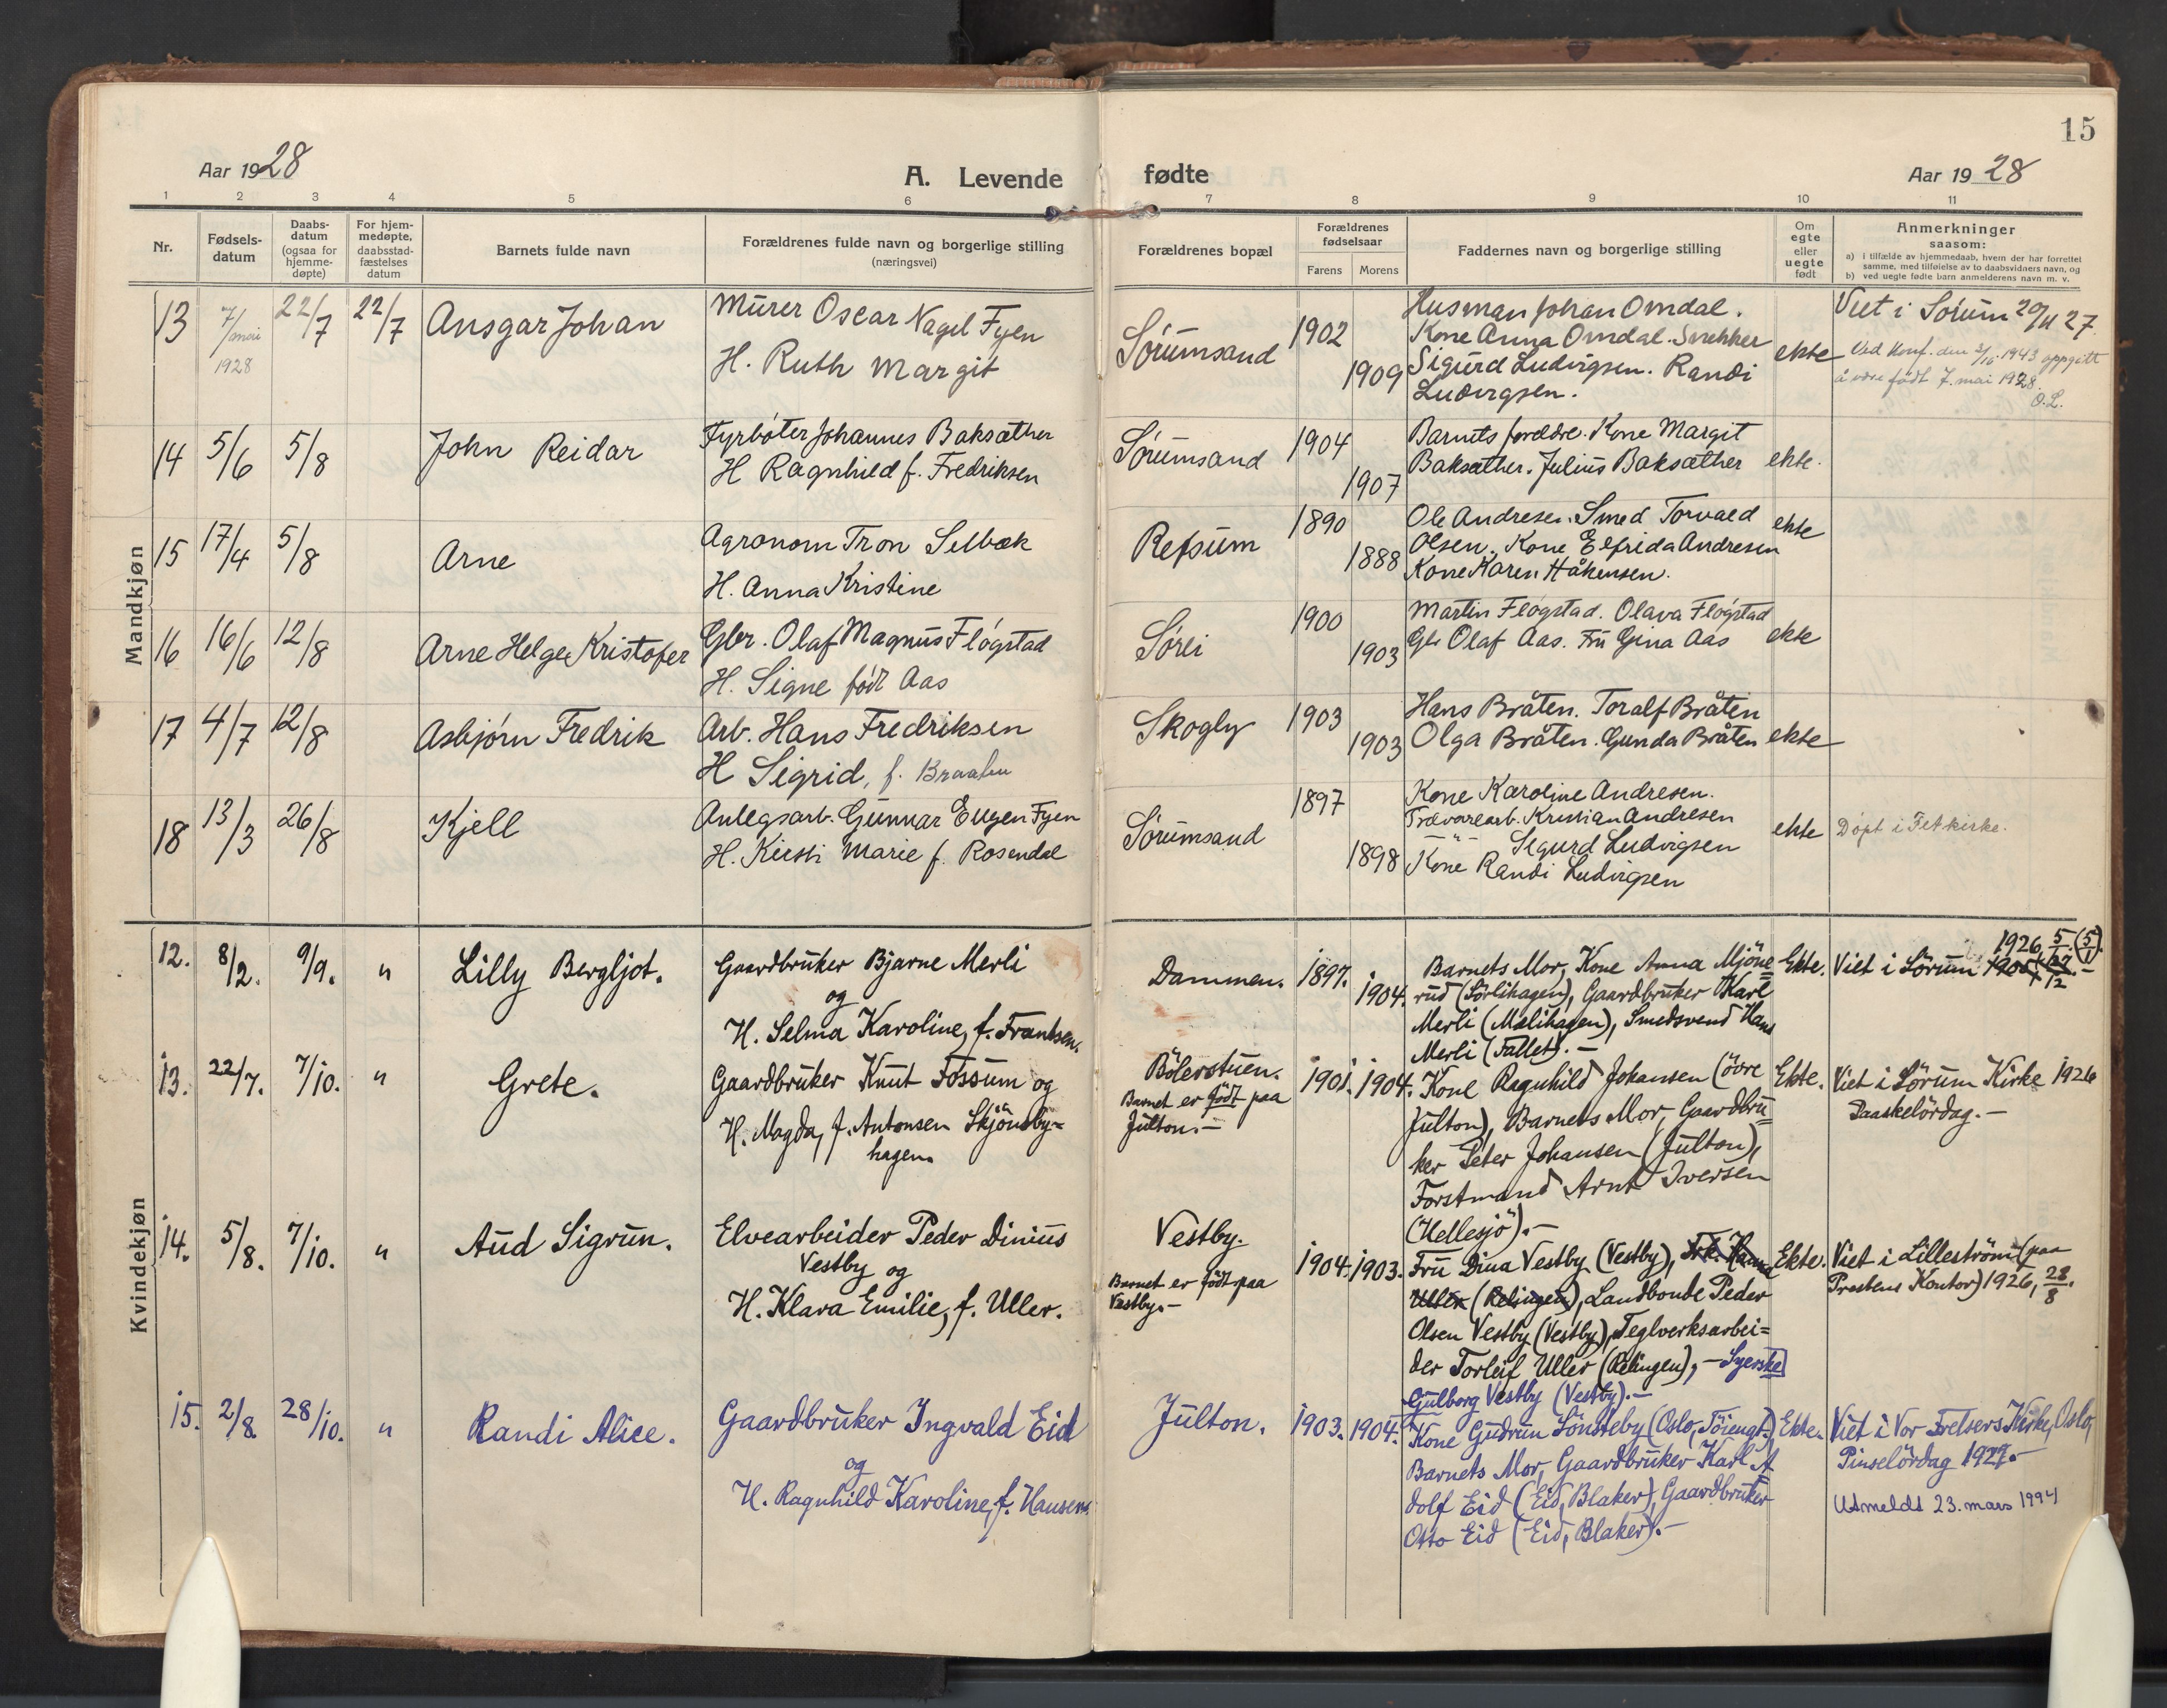 15
Aar 1928
A. Levende fødte
Aar 1928
1 2 3 4 5 6 7 8 9 10 11
Nr.
Fødsels-
datum
Daabs-
datum
(ogsaa for
hjemme-
døpte)
For hjem-
medøpte,
daabsstad-
fæstelses
datum
Barnets fulde navn
Forældrenes fulde navn og borgerlige stilling
(næringsvei)
Forældrenes bopæl
Forældrenes
fødselsaar
Farens Morens
Faddernes navn og borgerlige stilling
Om
egte
eller
uegte
født
Anmerkninger
saasom:
a) i tilfælde av hjemmedaab, hvem der har forrettet
samme, med tilføielse av to daabsvidners navn, og
b) ved uegte fødte barn anmelderens navn m. v.
Mandkjøn
13
7/mai
1928
22/7
22/7
Ansgar Johan
Murer Oscar Nagel Fyen
H. Ruth Margit
Sørumsand
1902
1909
Husman Johan Omdal.
Kone Anna Omdal. Snekker
Sigurd Ludvigsen. Randi
Ludvigsen.
ekte
Viet i Sørum 20/11 27.
Ved konf. den 3/10 1943 oppgitt
å være født 7. mai 1928.
O.L.
14
5/6
5/8
John Reidar
Fyrbøter Johannes Baksæther
H Ragnhild f. Fredriksen
Sørumsand
1904
1907
Barnets foreldre. Kone Margit
Baksæther. Julius Baksæther
ekte.
15
17/4
5/8
Arne
Agronom Tron Selbæk
H. Anna Kristine
Refsum
1890
1888
Ole Andresen. Smed Torvald
Olsen. Kone Elfrida Andresen
Kone Karen Håkensen.
ekte
16
16/6
12/8
Arne Helge Kristofer
Gbr. Olaf Magnus Fløgstad
H. Signe født Aas
Sørli
1900
1903
Martin Fløgstad. Olava Fløgstad
Gbr Olaf Aas. Fru Gina Aas
ekte
17
4/7
12/8
Asbjørn Fredrik
Arb. Hans Fredriksen
H Sigrid, f. Braaten
Skogly
1903
1903
Hans Bråten. Toralf Bråten
Olga Bråten. Gunda Bråten
ekte
18
13/3
26/8
Kjell
Anlegsarb. Gunnar Eugen Fyen
H. Kirsti Marie f. Rosendal
Sørumsand
1897
1898
Kone Karoline Andresen.
Trævarearb. Kristian Andresen
—"— Sigurd Ludvigsen
Kone Randi Ludvigsen
ekte
Døpt i Fet kirke.
Kvindekjøn
12.
8/2.
9/9.
"
Lilly Bergljot.
Gaardbruker Bjarne Merli
og
H. Selma Karoline, f. Frantsen.
Dammen.
1897.
1904.
Barnets Mor, Kone Anna Mjöne=
rud (Sörlihagen), Gaardbruker Karl
Merli (Mælihagen), Smedsvend Hans
Merli (Fallet).—
Ekte.
1926, 5/1 (5/1).
Viet i Sörum
13.
22/7.
7/10.
"
Grete.
Gaardbruker Knut Fossum og
H. Magda, f. Antonsen Skjönsby=
hagen.
Bölerstuen.
Barnet er födt paa
Julton.—
1901.
1904.
Kone Ragnhild Johansen (övre
Julton), Barnets Mor, Gaardbru=
ker Peter Johansen (Julton),
Forstmand Arnt Iversen
(Hellesjö).—
Ekte.
Viet i Sörum Kirke 1926
Paaskelördag.—
14.
5/8.
7/10.
"
Aud Sigrun.
Elvearbeider Peder Dinius
Vestby og
H. Klara Emilie, f. Uller.
Vestby.
Barnet er födt paa
Vestby.—
1904.
1903.
Fru Dina Vestby (Vestby), Frk. Hanna
Uller (Relingen), Landbonde Peder
Olsen Vestby (Vestby), Teglverksarbei=
der Torleif Uller (Relingen),— Syerske
Gulborg Vestby (Vestby).—
Ekte.
Viet i Lilleström (paa
Prestens Kontor) 1926, 28/8.
15.
2/8.
28/10.
"
Randi Alice.
Gaardbruker Ingvald Eid
og
H. Ragnhild Karoline, f. Hansen.
Julton.
1903.
1904.
Kone Gudrun Sönsteby (Oslo, Töiengt.),
Barnets Mor, Gaardbruker Karl A=
dolf Eid (Eid, Blaker), Gaardbruker
Otto Eid (Eid, Blaker).—
Ekte.
Viet i Vor Frelsers Kirke, Oslo,
Pinselördag 1927.—
Utmeldt 23. mars 1994